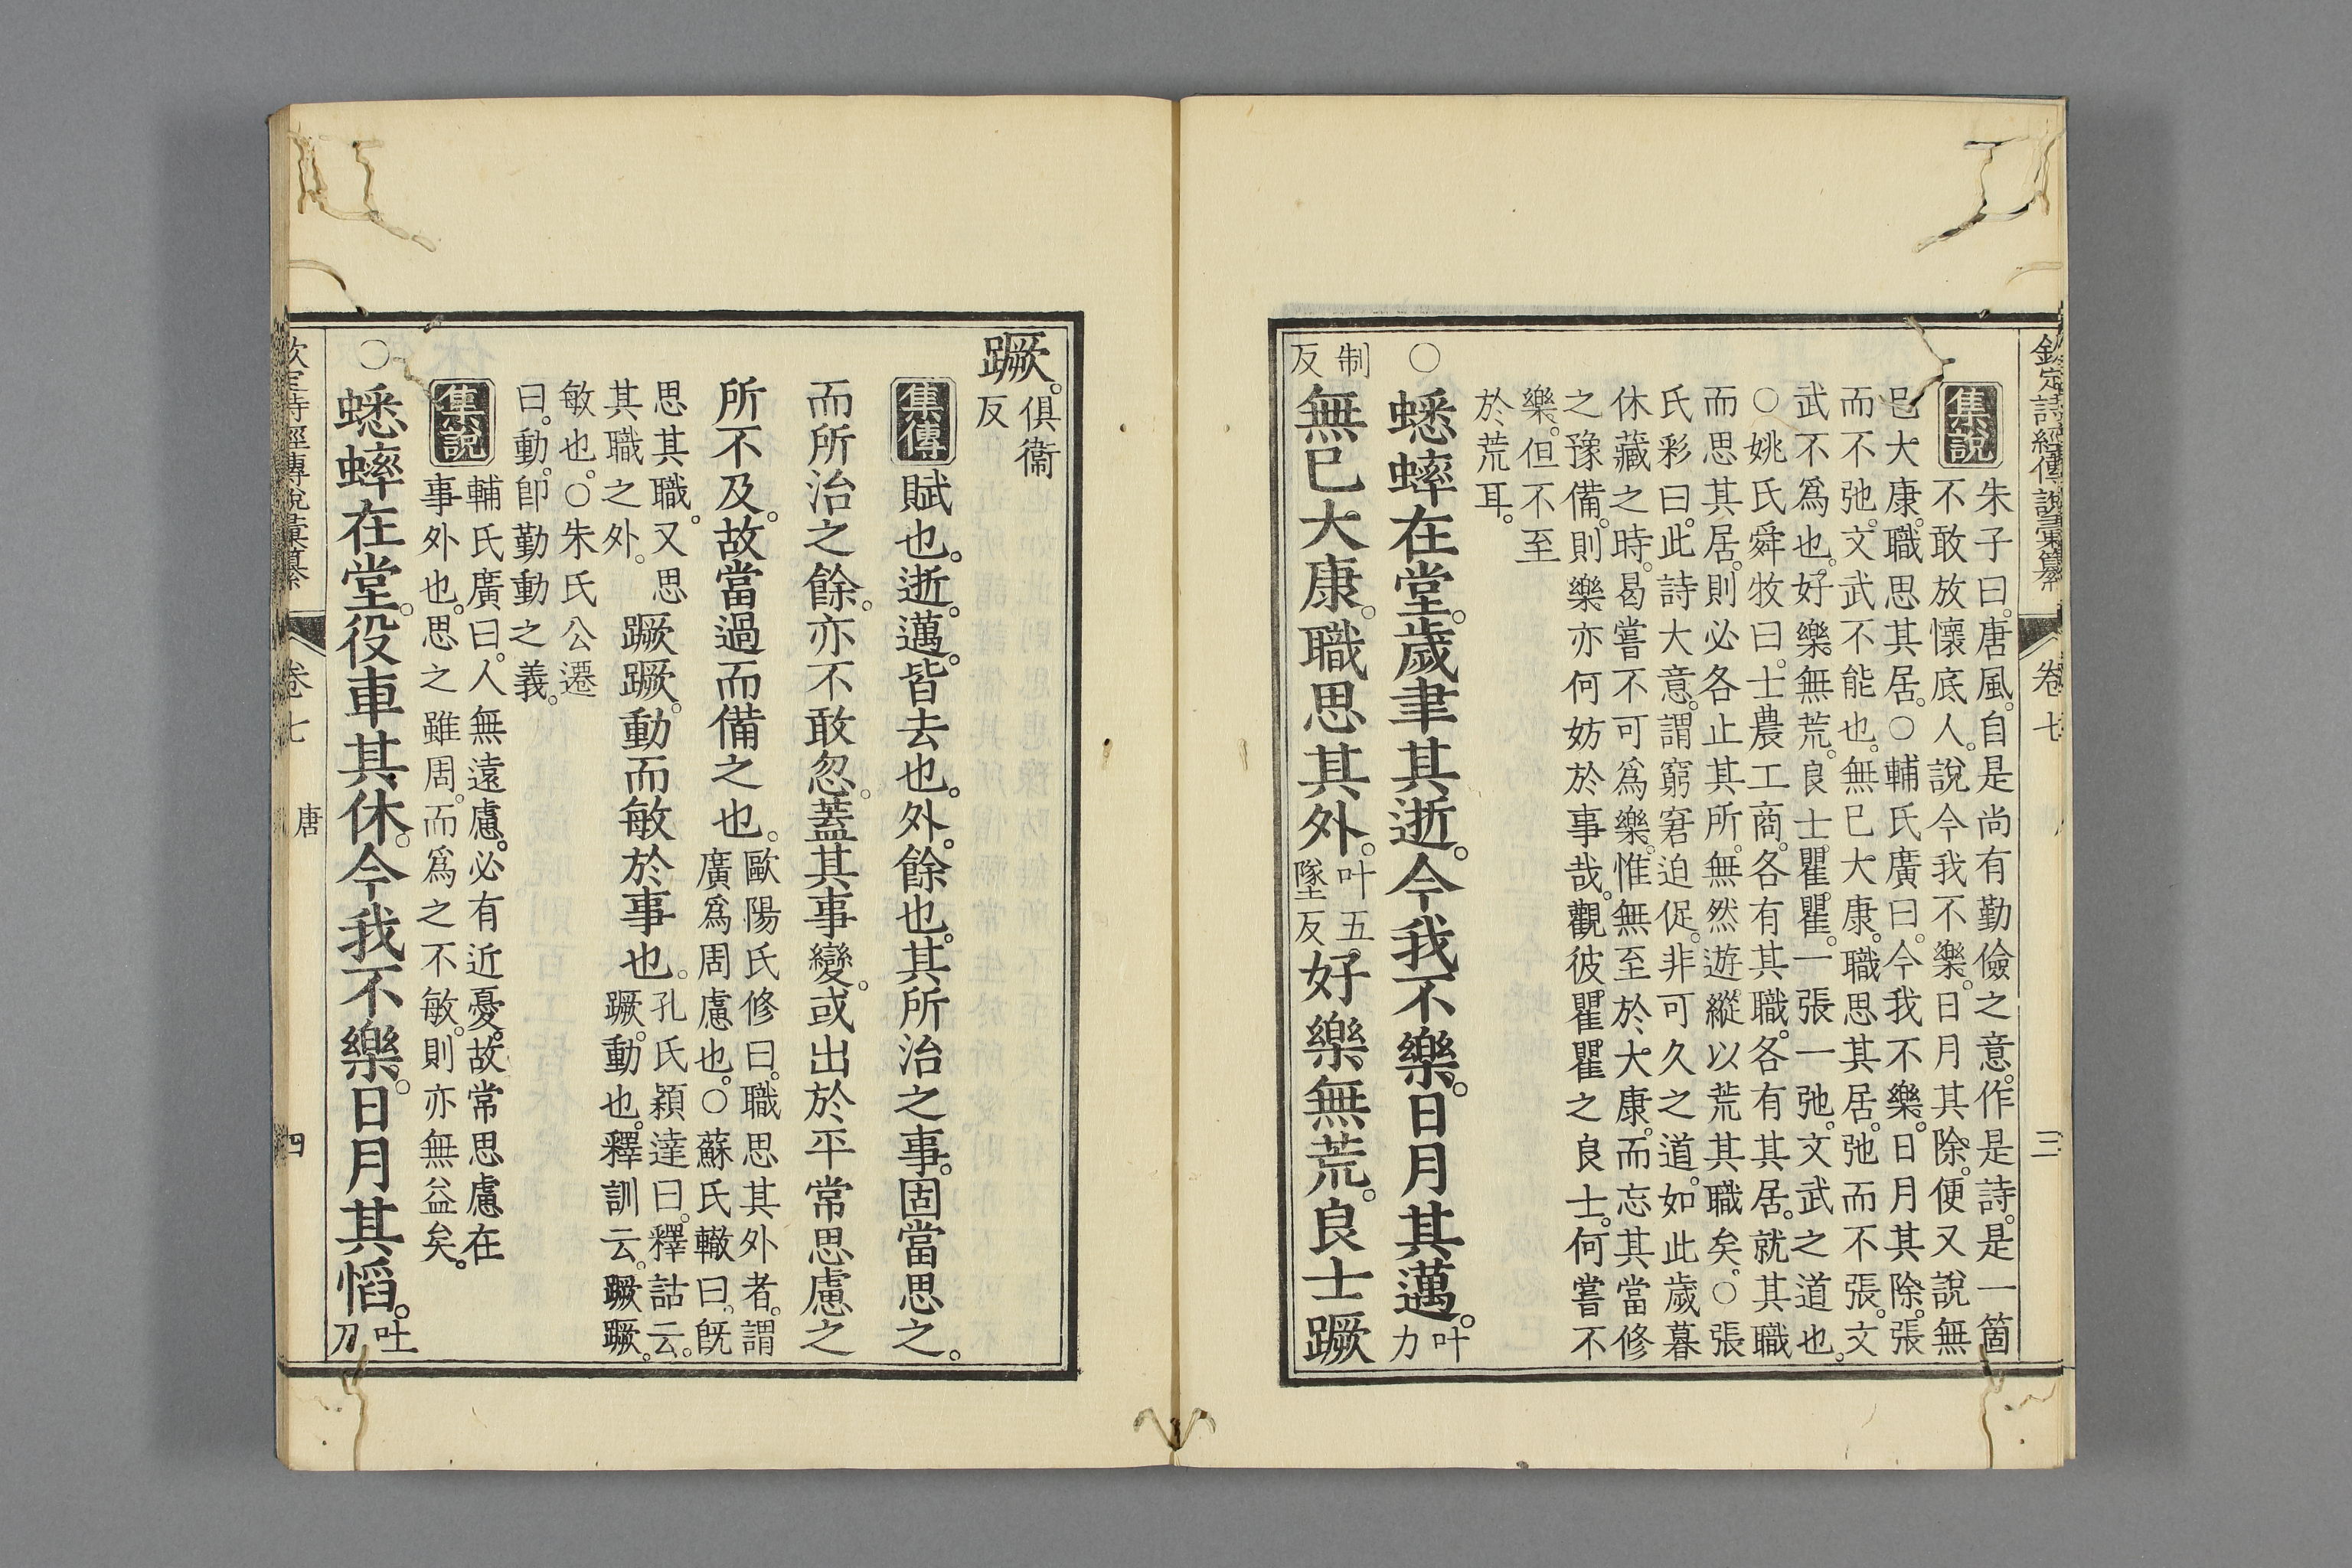 欽定詩經傳說彙纂　卷七　三
集說　朱子曰。唐風。自是尚有勤儉之意。作是詩。是一箇
不敢放懷底人。說今我不樂。日月其除。便又說無
已大康。職思其居。○輔氏廣曰。今我不樂。日月其除。張
而不弛。文武不能也。無已大康。職思其居。弛而不張。文
武不為也。好樂。無荒。良士。瞿瞿。一張一弛。文武之道也。
○姚氏舜牧曰。士農工商。各有其職。各有其居。就其職
而思其居。則必各止其所。無然遊。縱以荒其職矣。○張
氏彩曰。此詩大意。謂窮窘迫促。非可久之道。如此歲暮
休藏之時。曷嘗不可為樂。惟無至於大康。而忘其當修
之豫備。則樂亦何妨於事哉。觀彼瞿瞿之良士。何嘗不
樂。但不至
於荒耳。
○蟋蟀在堂。歲聿其逝。今我不樂。日月其邁。叶力
制反無已大康。職思其外。叶五墜反好樂無荒。良士蹶
蹶。俱衞反
集傳　賦也。逝。邁。皆去也。外。餘也。其所治之事。固當思之。
而所治之餘。亦不敢忽。蓋其事變。或出於平常思慮之
所不及。故當過而備之也。歐陽氏修曰。職思其外者。謂
廣為周慮也。○蘇氏轍曰。旣
思其職。又思
其職之外。蹶蹶。動而敏於事也。孔氏穎達曰。釋詁云。
蹶。動也。釋訓云。蹶蹶。
敏也。○朱氏公遷
曰。動。卽勤動之義。
集說　輔氏廣曰。人無遠慮。必有近憂。故常思慮在
事外也。思之雖周。而為之不敏。則亦無益矣。
○蟋蟀在堂。役車其休。今我不樂。日月其慆。吐刀
欽定詩經傳說彙纂　卷七　唐　四